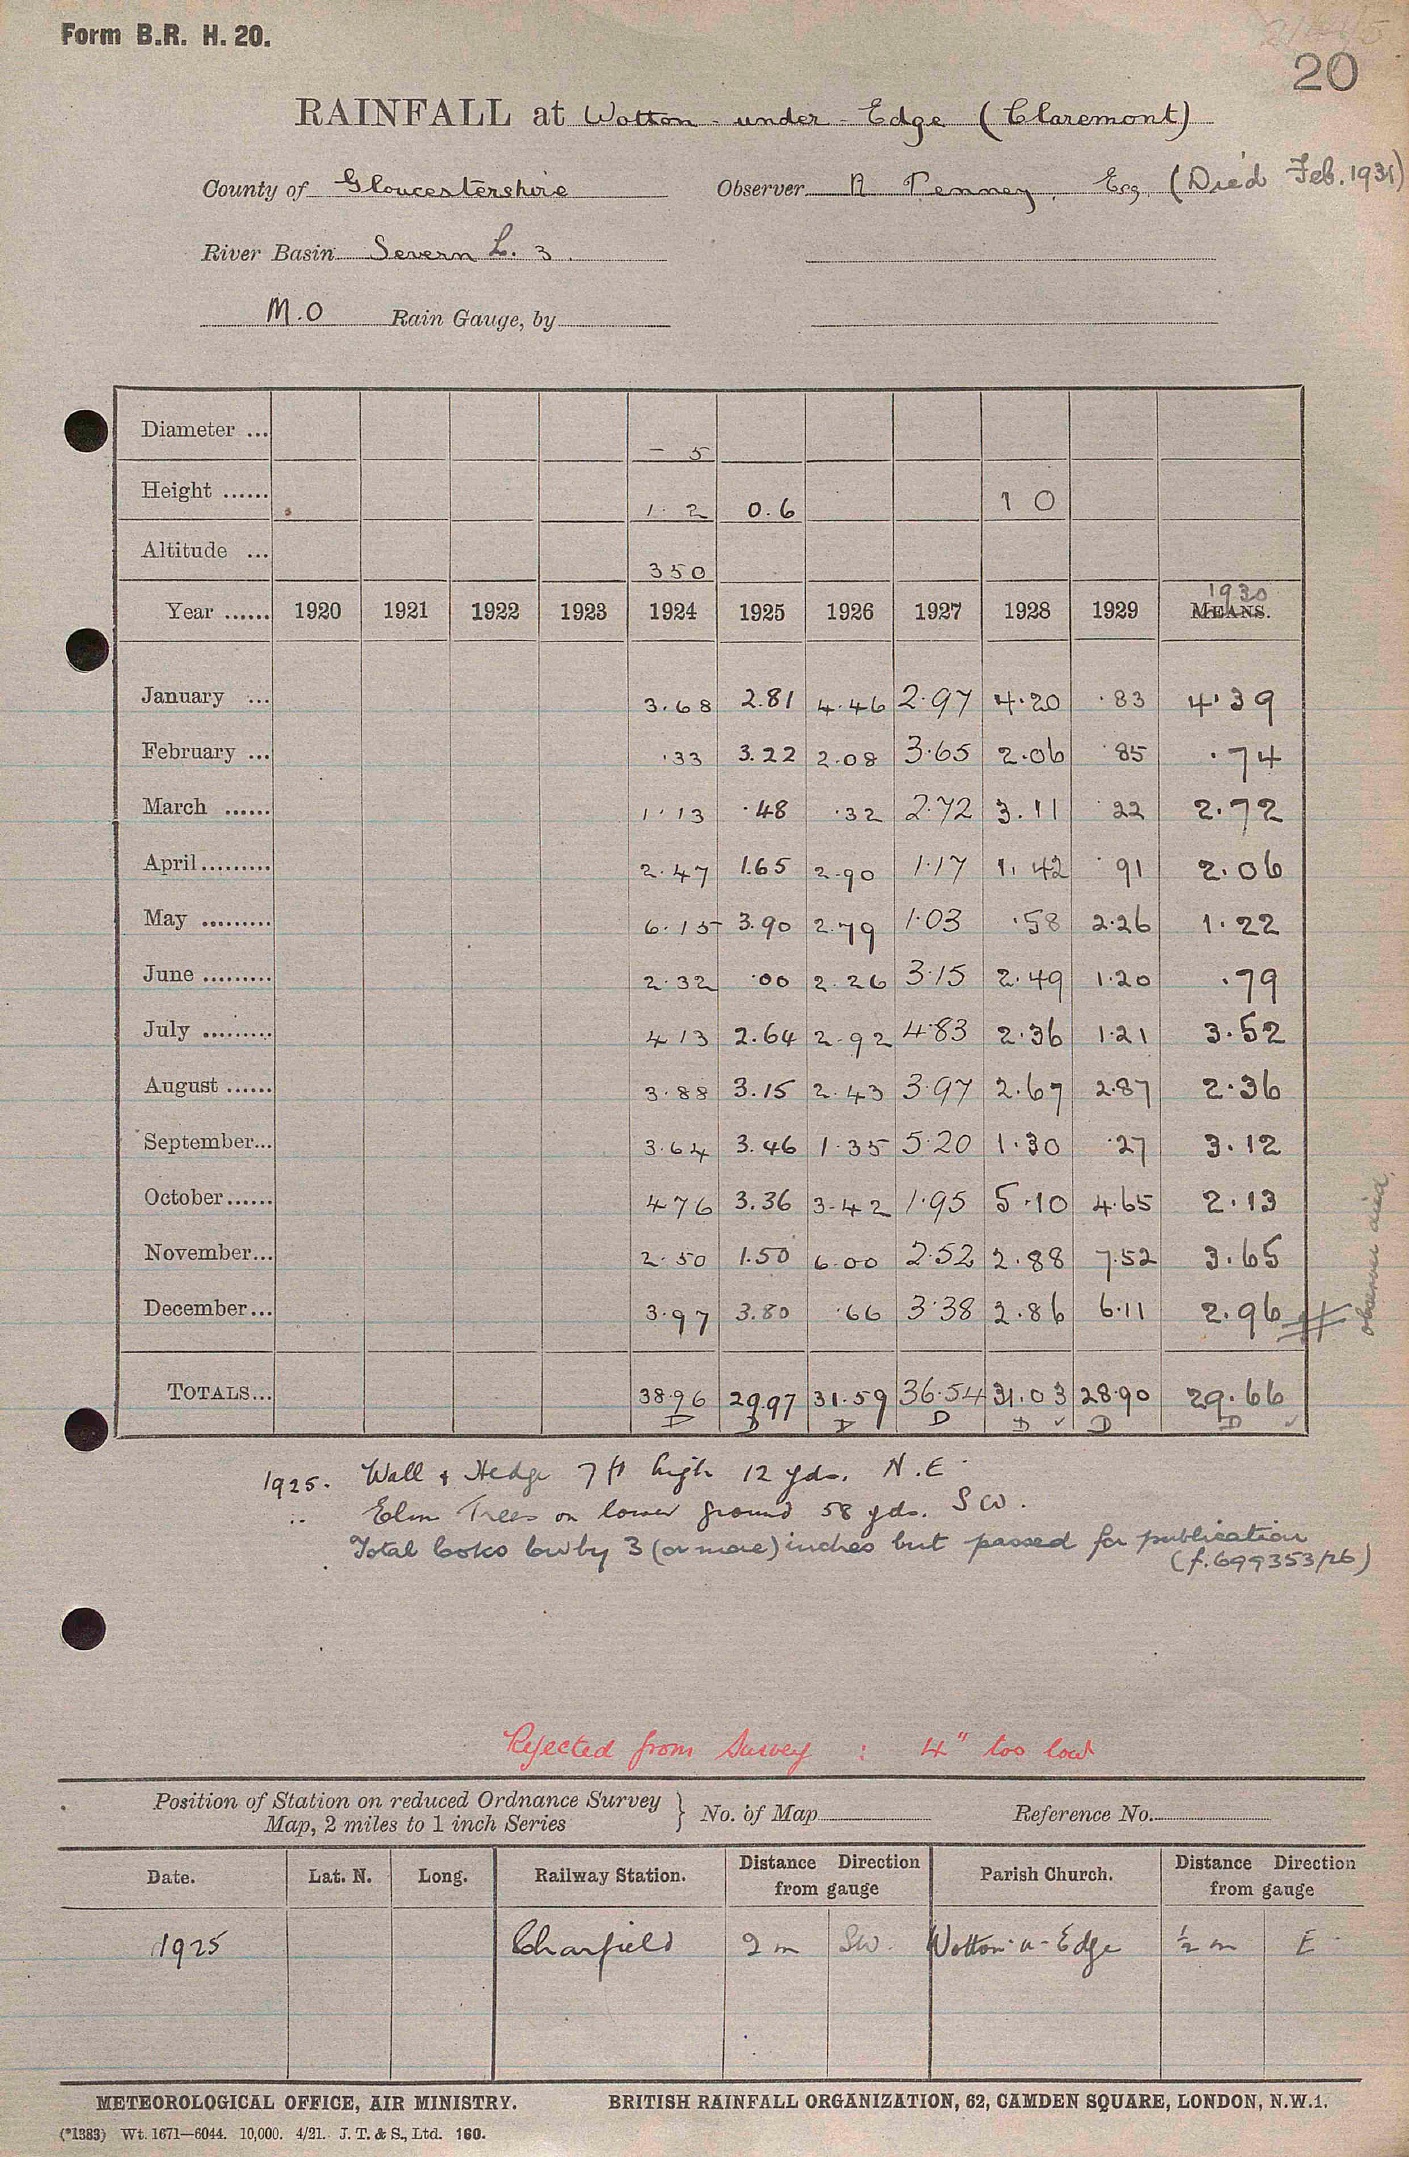 Form B.R. H. 20.
20
RAINFALL at Wotton-under-Edge (Claremont)
County of Gloucestershire Observer A Penney, Esq (Died Feb. 1931)
River Basin Severn L. 3.
M.O Rain Gauge, by
Diameter ... – 5
Height ...... 1. 2 0.6 1 0
Altitude ... 350
1930
Year ...... 1920 1921 1922 1923 1924 1925 1926 1927 1928 1929 MEANS.
January ... 3.68 2.81 4.46 2.97 4.20 .83 4.39
February ... .33 3.22 2.08 3.65 2.06 .85 .74
March ...... 1.13 .48 .32 2.72 3.11 .22 2.72
April ......... 2.47 1.65 2.90 1.17 1.42 .91 2.06
May ......... 6.15 3.90 2.79 1.03 .58 2.26 1.22
June ......... 2.32 .00 2.26 3.15 2.49 1.20 .79
July ......... 4.13 2.64 2.92 4.83 2.36 1.21 3.52
August ...... 3.88 3.15 2.43 3.97 2.67 2.87 2.36
September... 3.64 3.46 1.35 5.20 1.30 .27 3.12
October...... 4.76 3.36 3.42 1.95 5.10 4.65 2.13
November... 2.50 1.50 6.00 2.52 2.88 7.52 3.65
December... 3.97 3.80 .66 3.38 2.86 6.11 2.96
observer died.
TOTALS... 38.96 29.97 31.59 36.54 31.03 28.90 29.66
D D D D D ✓ D D ✓
1925. Wall & Hedge 7 ft high 12 yds. N.E.
" Elm Trees on lower ground 58 yds. SW.
Total looks low by 3 (or more) inches but passed for publication
(f.699353/26)
Rejected from Survey : 4" too low
Position of Station on reduced Ordnance Survey
Map, 2 miles to 1 inch Series } No. of Map Reference No.
Date. Lat. N. Long. Railway Station. Distance Direction from gauge Parish Church. Distance Direction from gauge
1925 Charfield 2 m SW. Wotton-u-Edge ½ m E
METEOROLOGICAL OFFICE, AIR MINISTRY. BRITISH RAINFALL ORGANIZATION, 62, CAMDEN SQUARE, LONDON, N.W.1.
(*1383) Wt. 1671—6044. 10,000. 4/21. J. T. & S., Ltd. 160.